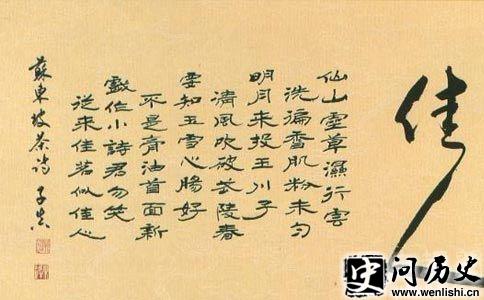 佳
仙山靈草濕行雲
洗遍香肌粉未勻
明月來投玉川子
清風吹破武陵春
要知玉雪心腸好
不是膏油首面新
戲作小詩君勿笑
從來佳茗似佳人
蘇東坡茶詩
史 问历史
www.wenlishi.cn